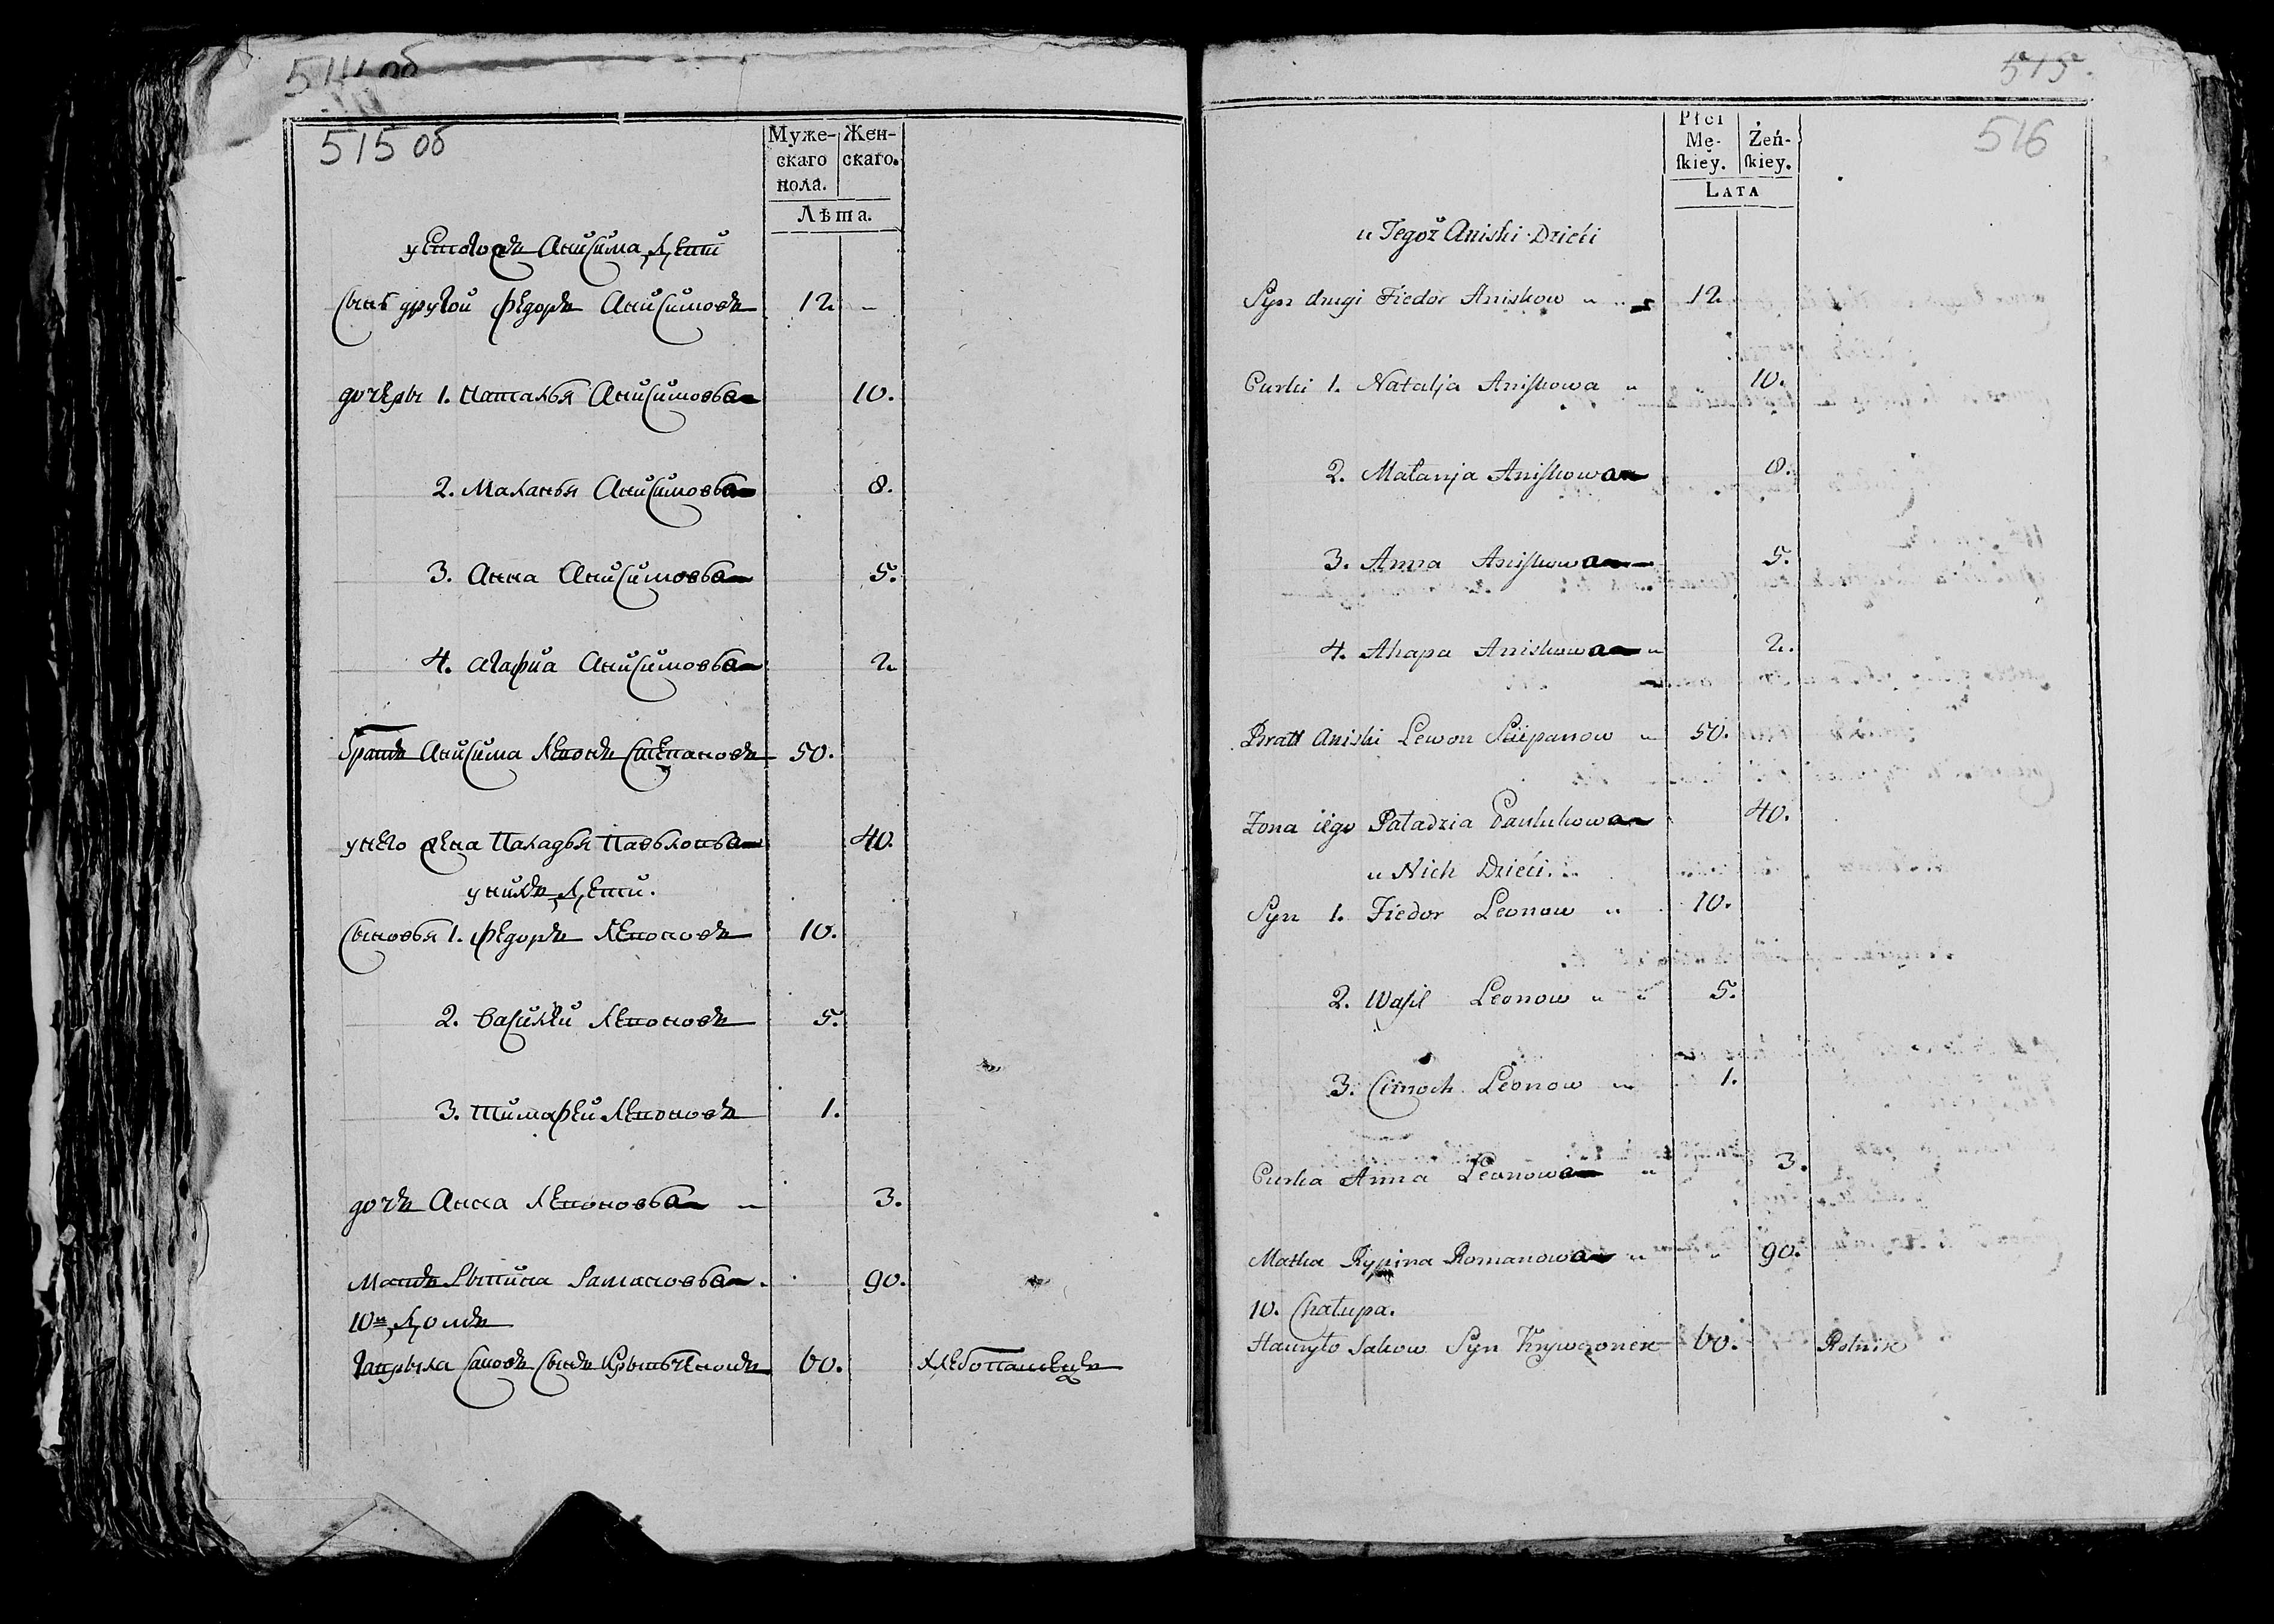 514 об
515 об
Муже-
скаго
пола.
Жен-
скаго.
Лѣта.
у Етогожъ Анисима Дѣти
Сынъ другой Федоръ Анисимовъ 12 -
дочери 1. Наталья Анисимовва 10.
2. Маланья Анисимовва 8.
3. Анна Анисимовва 5.
4. Агафиа Анисимовва 2
братъ Анисима Леонъ Степановъ 50.
у него жена Паладья Павьловва 40.
у нихъ Дѣти.
Сыновья 1. Федоръ Леоновъ 10.
2. Василѣй Леоновъ 5.
3. Тимафей Леоновъ 1.
дочъ Анна Леоновва 3.
Матъ Романовва 90.
10й Домъ
Гаврыла Саковъ Сынъ 60. хлебопашецъ
515.
516
Płci
Mę-
ſkiey.
Żeń-
ſkiey.
LATA
u Tegoż Aniski Dzieći
Syn drugi Fiedor Aniskow 12
Curki 1. Natalja Aniſkowa 10.
2. Małanja Aniſkowa 8.
3. Anna Aniſkowa 5.
4. Ahapa Aniskowa 2.
Bratt Aniski Lewon Sciepanow 50.
Zona iego Paładzia Pawlukowa 40.
u Nich Dzieći.
Syn 1. Fiedor Leonow 10.
2. Waſil Leonow 5.
3. Cimoch Leonow 1.
Curka Anna Leonowa 3.
Matka Rypina Romanowa 90.
10. Chałupa.
Hawryło Sakow Syn Krywczonek 60. Rolnik